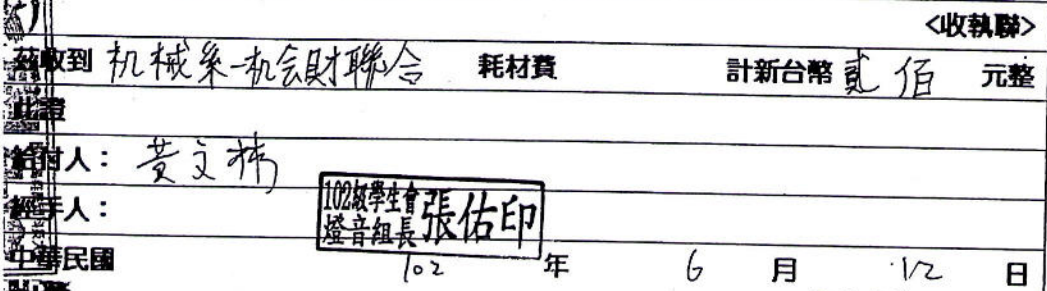 <收執聯>
茲收到 机械系-机会財聯合 耗材費 計新台幣 貳佰 元整
此證
給付人：黃文
經手人：
102級學生會
燈音組長 張佑印
中華民國 102 年 6 月 12 日